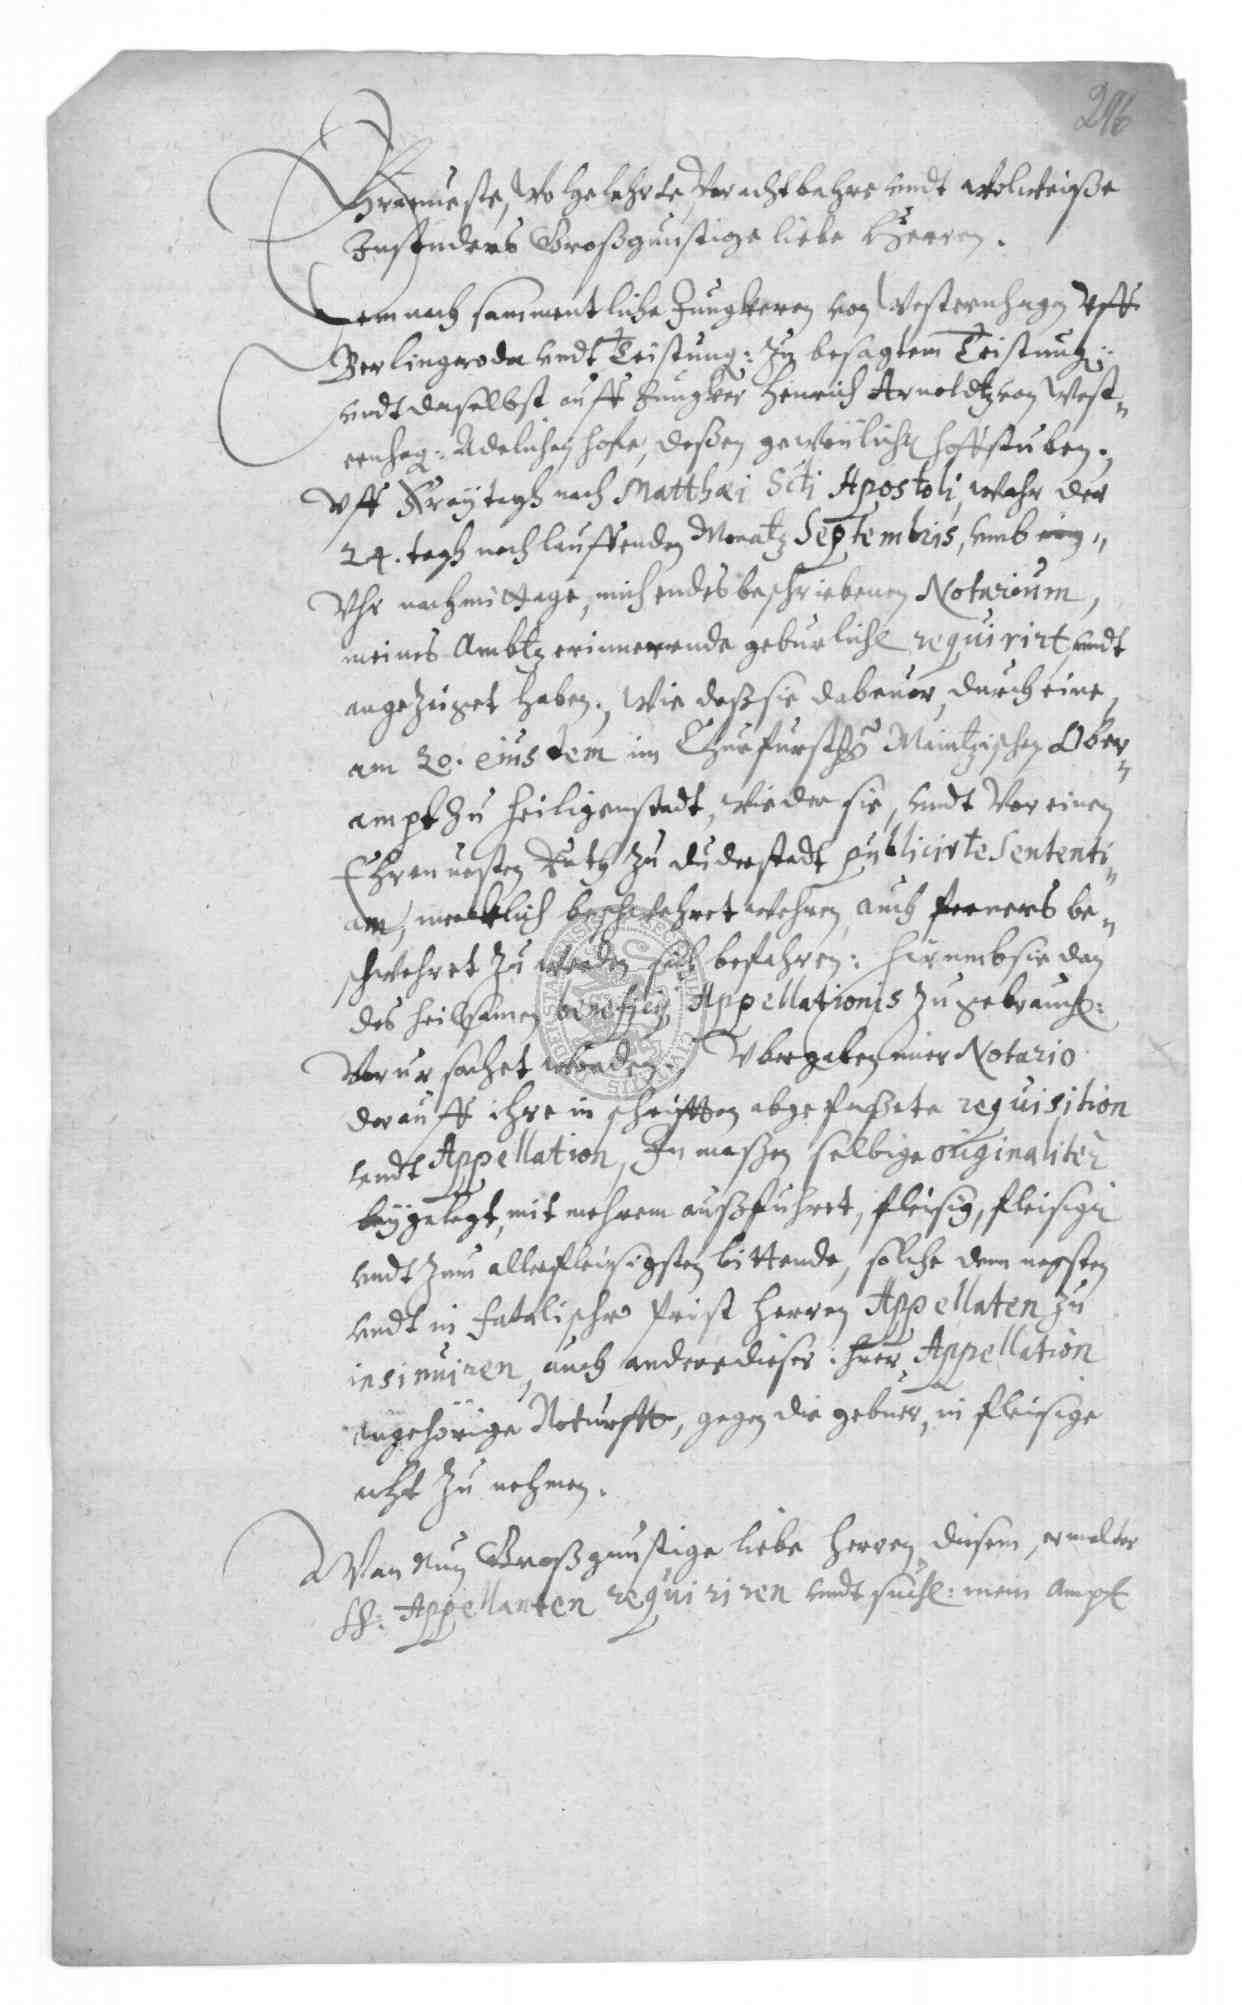 216
Ehrnueste, Wolgelahrte, Vorachtbahre vndt wolweiße
Insonders Großgunstige liebe Herren.
Demnach sammentliche Jungkeren von Westernhagen vff
Berlingeroda vndt Teistung: In besagtem Teistung:
vndt daselbst auff Jungker Henrich Arnoldtz von West=
ernhag: Adelichen hofe, deßen gewönlich hoffstuben.,
Vff Freytagh nach Matthæi Scti Apostoli, wahr der
24. tagh nachlauffenden Monatz Septembris, vmb ein,,
Vhr nachmittage, mich endesbeschriebenen Notarium,
meines Ambtz erinnerende geburlich requirirt, vndt
angezeiget haben., Wie daß sie dabeuor, durch eine,
am 20. eiusdem im Churfurstl: Maintzischen Ober=
ampt zu Heiligenstadt, wieder sie, vndt vor einen
Ehrnuesten Rath zu Duderstadt publicirte Sententi=
am, mercklich beschwehret wehren, auch ferners be=
schwehret zu werden sich befahren: hierumb sie dan
des heilsamen beneficij Appellationis zu gebrauch:
Verursachet worden., Vbergaben mier Notario
darauff ihre in schrifften abgefaßete requisition
vndt Appellation, Inmaßen selbige originaliter
beygelegt, mit mehrem außfuhret, fleisig, fleisigr
vndt zum allerfleisigsten bittende, solche dem nechsten
vndt in fatalischer frist Herren Appellaten zu
insinuiren, auch andere dieser ihrer Appellation
angehörige Noturfft, gegen die gebuer, in fleisige
acht zu nehmen.
Wan Nun Großgunstige liebe Herren diesem, ermelter
HH: Appellanten requiriren vndt such: mein Ampt